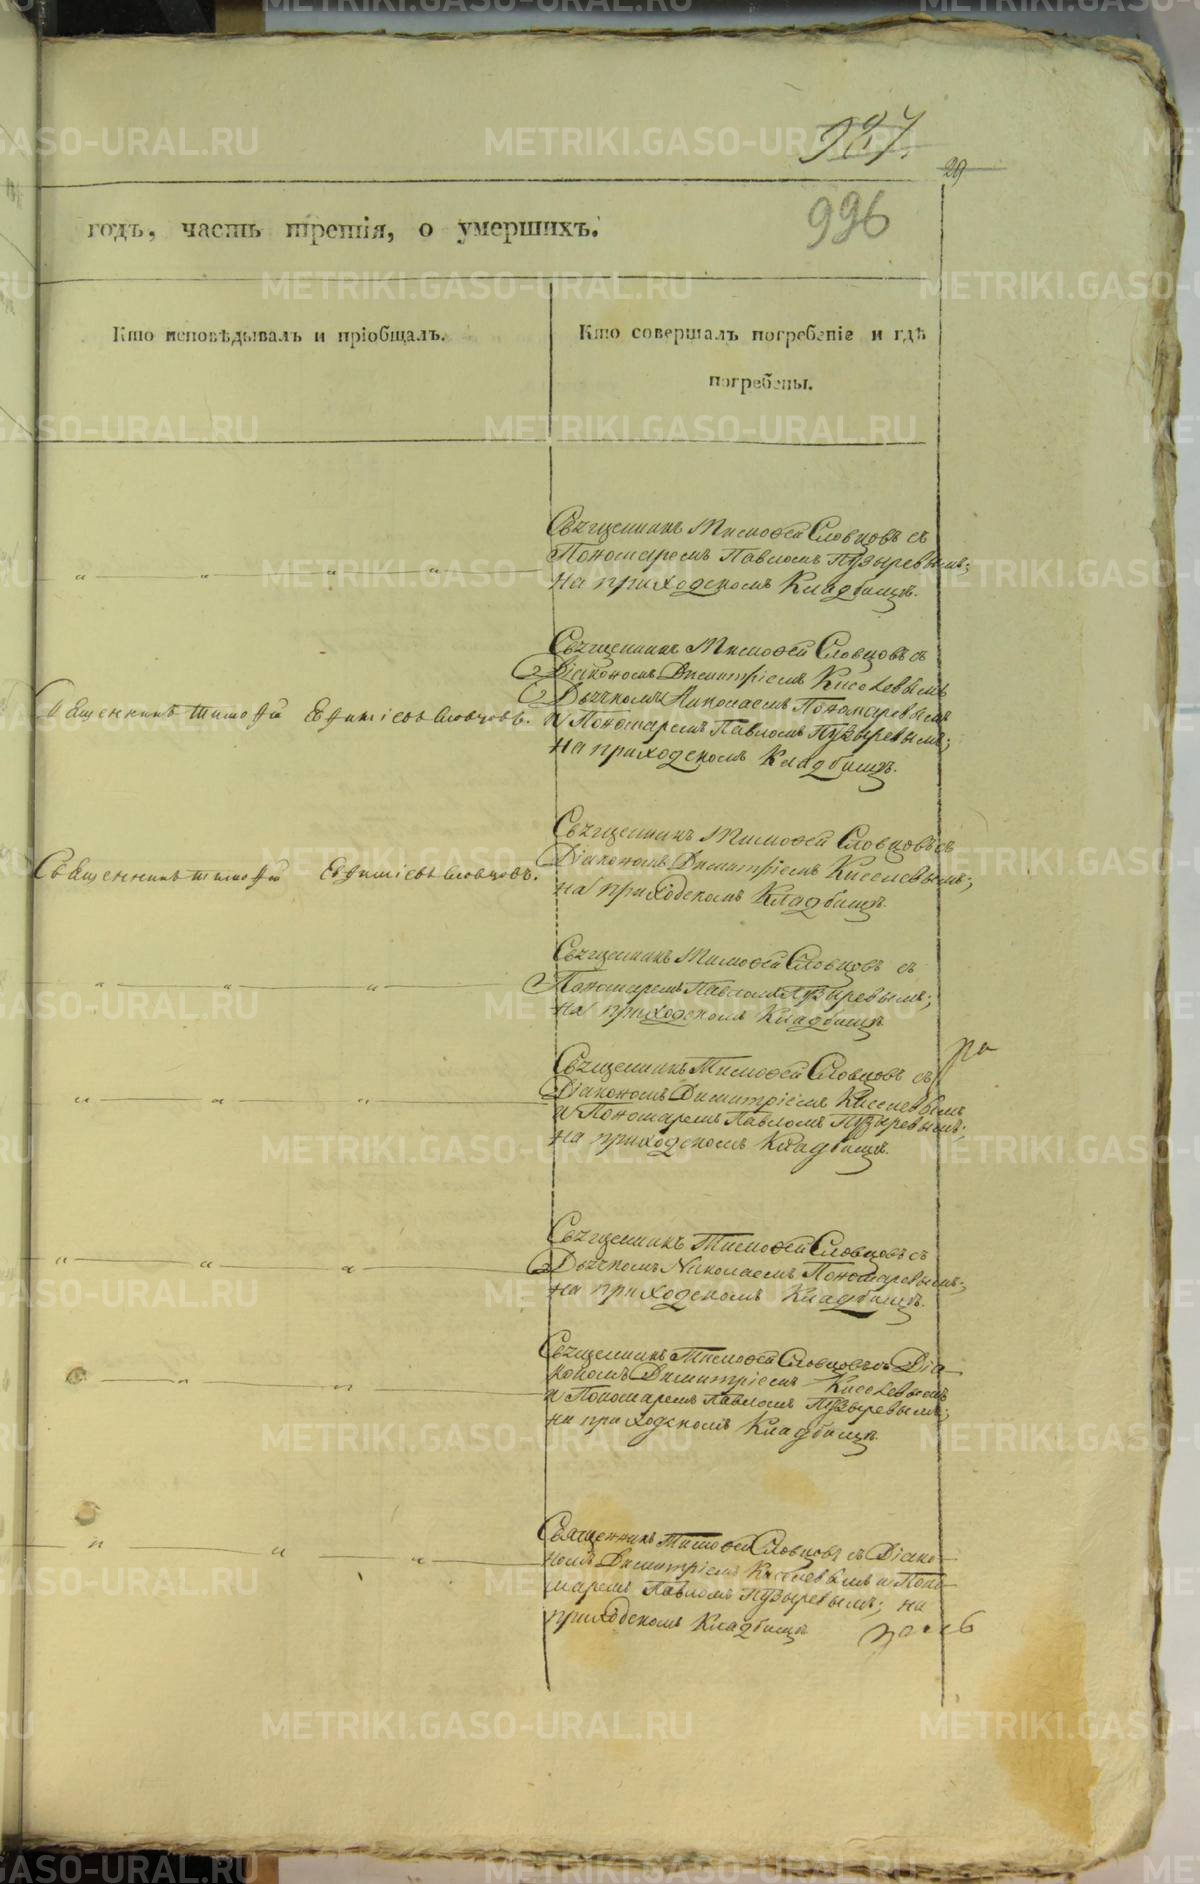 997.
29
996
годъ, часть третія, о умершихъ.
Кто исповѣдывалъ и пріобщалъ.
Кто совершалъ погребеніе и гдѣ
погребены.
Священникъ Тимофей Словцовъ съ
Пономаремъ Павломъ Пузыревымъ;
на приходскомъ Кладбищѣ.
Священникъ Тимофей Ефиміевъ Словцовъ.
Священникъ Тимофей Словцовъ съ
Діакономъ Димитріемъ Киселевымъ
Дьячкомъ Николаемъ Пономаревымъ
и Пономаремъ Павломъ Пузыревымъ;
на приходскомъ Кладбищѣ.
Священникъ Тимофей Ефиміевъ Словцовъ.
Священникъ Тимофей Словцовъ съ
Діакономъ Димитріемъ Киселевымъ;
на приходскомъ Кладбищѣ.
Священникъ Тимофей Словцовъ съ
Пономаремъ Павломъ Пузыревымъ;
на приходскомъ Кладбищѣ
Священникъ Тимофей Словцовъ съ
Діакономъ Димитріемъ Киселевымъ
и Пономаремъ Павломъ Пузыревымъ;
на приходскомъ Кладбищѣ.
Священникъ Тимофей Словцовъ съ
Дьячкомъ Николаемъ Пономаревымъ;
на приходскомъ Кладбищѣ.
Священникъ Тимофей Словцовъ съ Діа
кономъ Димитріемъ Киселевымъ
и Пономаремъ Павломъ Пузыревымъ;
на приходскомъ Кладбищѣ.
Священникъ Тимофей Словцовъ съ Діако-
номъ Димитріемъ Киселевымъ и Поно-
маремъ Павломъ Пузыревымъ; на
приходскомъ Кладбищѣ
METRIKI.GASO-URAL.RU